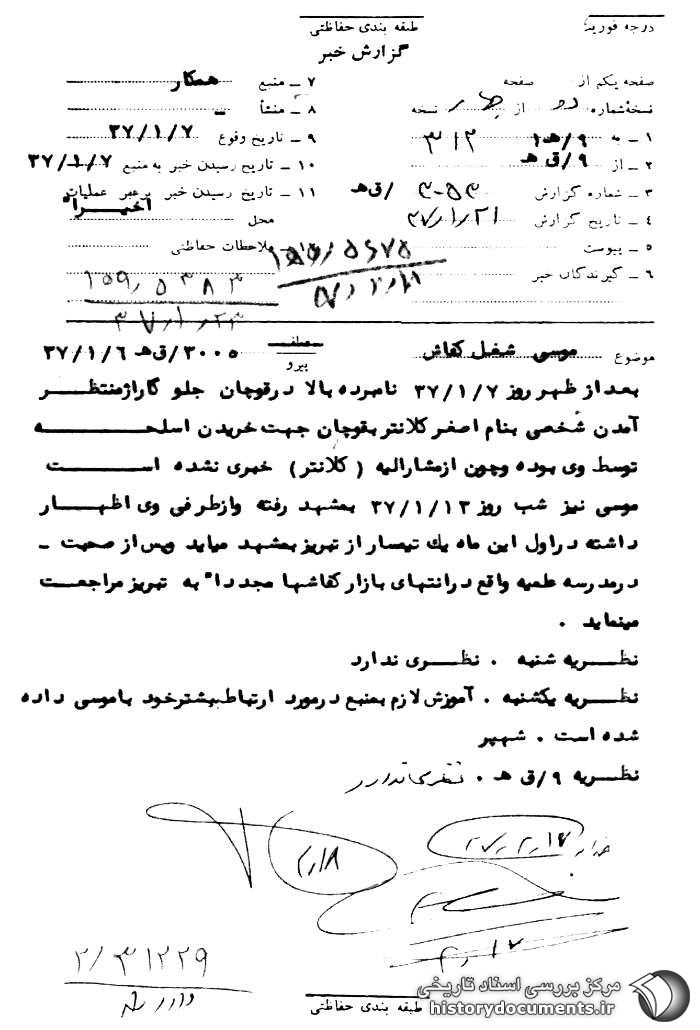 درجه فوریت
طبقه بندی حفاظتی
گزارش خبر
صفحه یکم از صفحه
نسخهٔ شماره دو از چهار نسخه
۱ ـ به ۹/هـ۱ ۳۱۲
۲ ـ از ۹/ق هـ
۳ ـ شماره گزارش ۳۰۵۳ /ق هـ
۴ ـ تاریخ گزارش ۳۷/۱/۲۱
۵ ـ پیوست
۶ ـ گیرندگان خبر
۷ ـ منبع همکار
۸ ـ منشأ ـ
۹ ـ تاریخ وقوع ۳۷/۱/۷
۱۰ ـ تاریخ رسیدن خبر به منبع ۳۷/۱/۷
۱۱ ـ تاریخ رسیدن خبر برهبر عملیات اخیراً
محل
ملاحظات حفاظتی
۱۵۹/۵۶۷۵
۱۵۹/۵۳۸۳
۳۷/۱/۲۳
موضوع موسی شغل کفاش
عطف
پیرو
۳۰۰۵/ق هـ ۳۷/۱/۶
بعد از ظهر روز ۳۷/۱/۷ نامبرده بالا درقوچان جلو گاراژ منتظر
آمدن شخصی بنام اصغر کلانتر بقوچان جهت خریدن اسلحه
توسط وی بوده وچون ازمشارالیه ( کلانتر ) خبری نشده است
موسی نیز شب روز ۳۷/۱/۱۳ بمشهد رفته وازطرفی وی اظهار
داشته دراول این ماه یك تیمسار از تبریز بمشهد میاید وپس از صحبت ـ
درمدرسه علمیه واقع درانتهای بازار کفاشها مجدداً به تبریز مراجعت
مینماید .
نظریه شنبه . نظری ندارد
نظریه یکشنبه . آموزش لازم بمنبع درمورد ارتباط بیشتر خود باموسی داده
شده است . شهپر
نظریه ۹/ق هـ . نظری ندارد
۳۷/۲/۱۷
۲/۱۸
۲/۱۷
۲/۳۱۲۲۹
طبقه بندی حفاظتی
مرکز بررسی اسناد تاریخی
historydocuments.ir